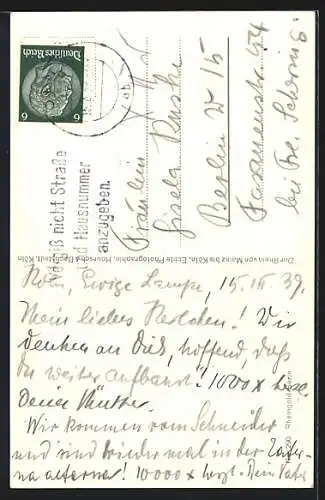 Deutsches Reich
6 6
Vergiß nicht Straße
und Hausnummer
anzugeben.
Fräulein
Gisela
Berlin W 15
Fasanenstr. 54
bei Fr.
Der Rhein von Mainz bis Köln, Echte Photographie, Hoursch & Bechstedt, Köln
Köln, Ewige Lampe, 15. III. 39.
Mein liebes! Wir
denken an Dich, hoffend, daß
du weiter! 1000 x herzl.
Deine Mutter.
Wir kommen vom Schneider
und sind wieder mal in der Taber-
na aeterna! 10000 x herzl. Dein Vater
Rheingoldserien